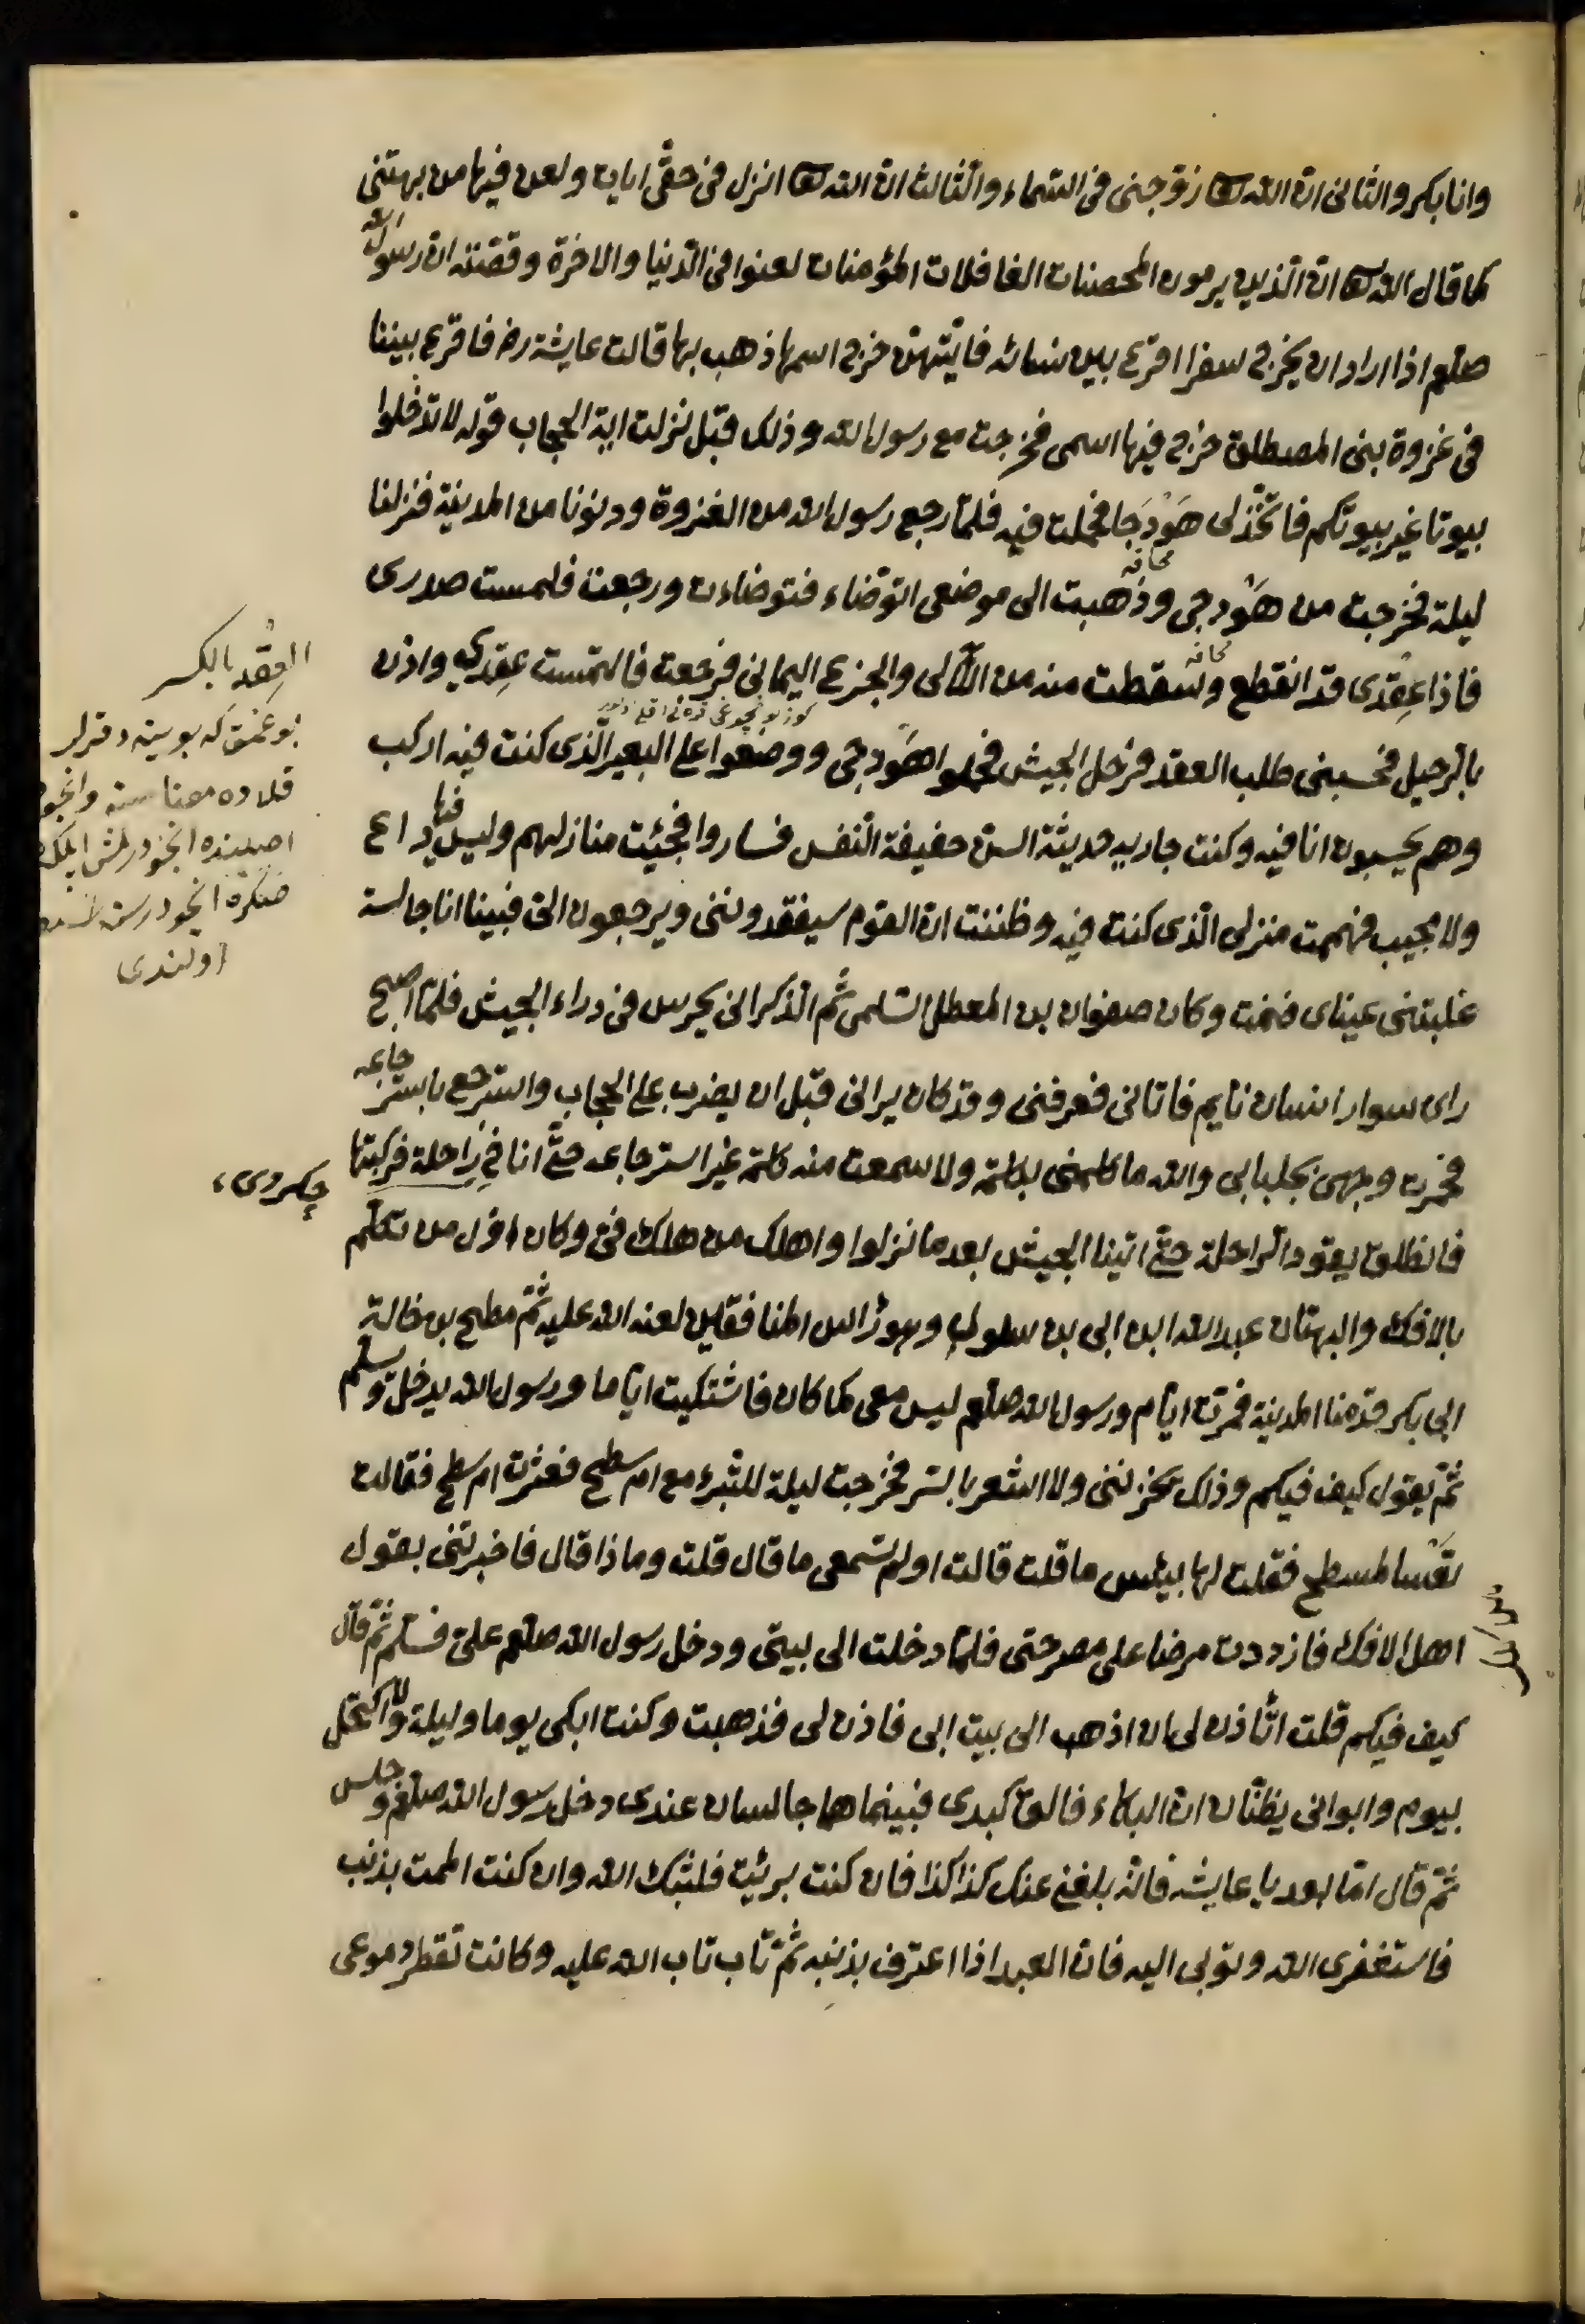 وانا بكر والثانى ان الله تعا زوجنى فى السماء والثالث ان الله تعا انزل فى حقى ايات ولعن فيها من بهتنى
كما قال الله تعا ان الذين يرمون المحصنات الغافلات المؤمنات لعنوا فى الدنيا والاخرة وقصته ان رسول الله
صلعم اذا اراد ان يخرج سفرا اقرع بين نسائه فايتهن خرج اسمها ذهب بها قالت عايشة رض فاقرع بيننا
فى غزوة بنى المصطلق خرج فيها اسمى فخرجت مع رسول الله وذلك قبل نزلت اية الحجاب قوله لا تدخلوا
بيوتا غير بيوتكم فاتخذ لى هَوْدَجا فحملت فيه فلما رجع رسول الله من الغزوة ودنونا من المدينة فنزلنا
محافه
ليلة فخرجت من هَوْدجى وذهبت الى موضعى اتوضاء فتوضاءت ورجعت فلمست صدرى
محافه
فاذا عِقْدى قد انقطع وسقطت منه من اللآلى والجزع اليمانى فرجعت فالتمست عِقدى واذن
بالرحيل فحسبنى طلب العقد فرحل الجيش فحملوا هَوْدجى ووضعوا على البعير الذى كنت فيه اركب
وهم يحسبون انا فيه وكنت جارية حديثة السن خفيفة النفس فساروا فجئت منازلهم وليس فيها داع
ولا مجيب فهممت منزلى الذى كنت فيه وظننت ان القوم سيفقدوننى ويرجعون الىّ فبينا انا جالسة
غلبتنى عيناى فنمت وكان صفوان بن المعطل السلمى ثم الذكرانى يحرس فى وراء الجيش فلما اصبح
راى سوار انسان نايم فاتانى فعرفنى وقد كان يرانى قبل ان يضرب على الحجاب واسترجع باسترجاعه
فخمرت وجهى بجلبابى والله ما كلمنى بكلمة ولا سمعت منه كلمة غير استرجاعه حتى انا فى راحلة فركبتها
فانطلق يقود الراحلة حتى اتينا الجيش بعد ما نزلوا واهلك من هلك فىّ وكان اول من تكلم
بالافك والبهتان عبد الله ابن ابى بن سلول وهو رأس المنافقين لعنه الله عليه ثم مطسح بن خالة
ابى بكر قدمنا المدينة فمرت ايام ورسول الله صلعم ليس معى كما كان فاشتكيت اياما ورسول الله يدخل وسلم
ثم يقول كيف فيكم وذلك يحزننى ولا اشعر بالشر فخرجت ليلة للتبرء مع ام سطح فعثرت ام سطح فقالت
تعَسا لمسطح فقلت لها بيئس ما قلت قالت اولم تسمعى ما قال قلت وماذا قال فاخبرتنى بقول
اهل الافك فازددت مرضا على مرضى فلما دخلت الى بيتى ودخل رسول الله صلعم علىّ فسلم ثم قال
كيف فيكم قلت اتأذن لى ان اذهب الى بيت ابى فاذن لى فذهبت وكنت ابكى يوما وليلة ولا اكتحل
بيوم وابوانى يظنان ان البكاء فالق كبدى فبينما هما جالسان عندى دخل رسول الله صلعم وجلس
ثم قال اما بعد يا عايشه فانه بلغنى عنك كذا كذا فان كنت بريئة فلتبرك الله وان كنت الممت بذنب
فاستغفرى الله وتوبى اليه فان العبد اذا اعترف بذنبه ثم تاب تاب الله عليه وكانت تقطر دموعى
العِقْد بالكسر
بوغمق كه بوينه دقرلر
قلاده معناسنه
اولندى
چكردى